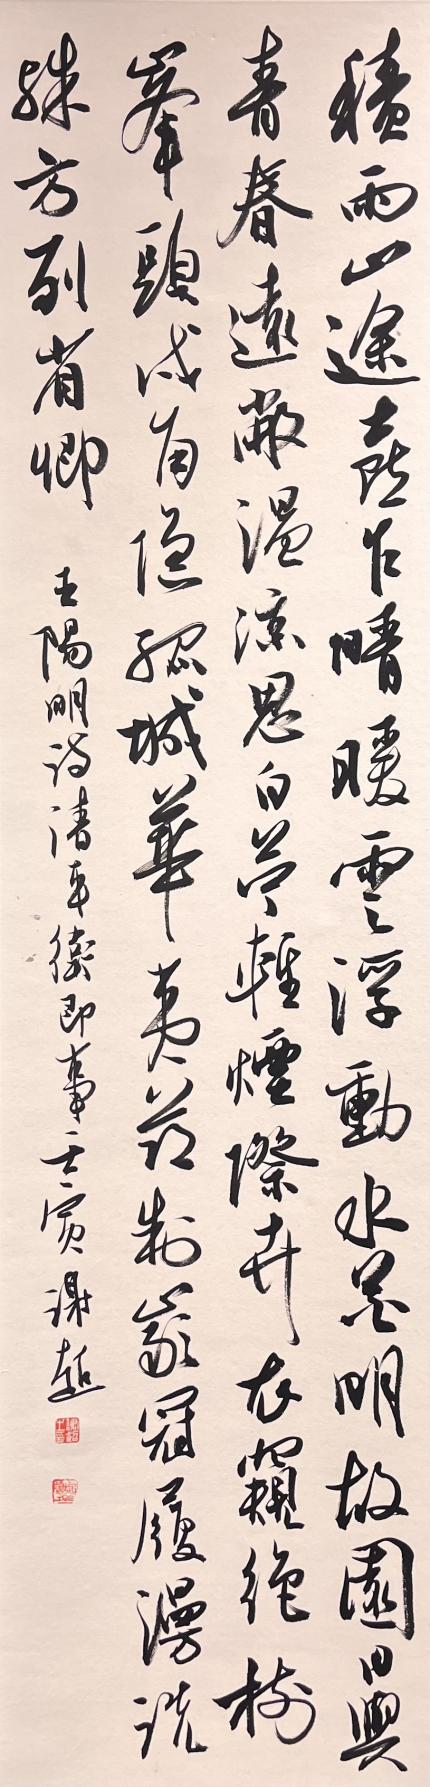 積雨山途喜乍晴暖雲浮動水花明故園日與
青春遠敝溫涼思白苧輕煙際卉衣窺絕棧
峯頭戍角隱孤城華夷節制嚴冠履漫說
殊方列省卿
王陽明詩清平衛即事壬寅謝超